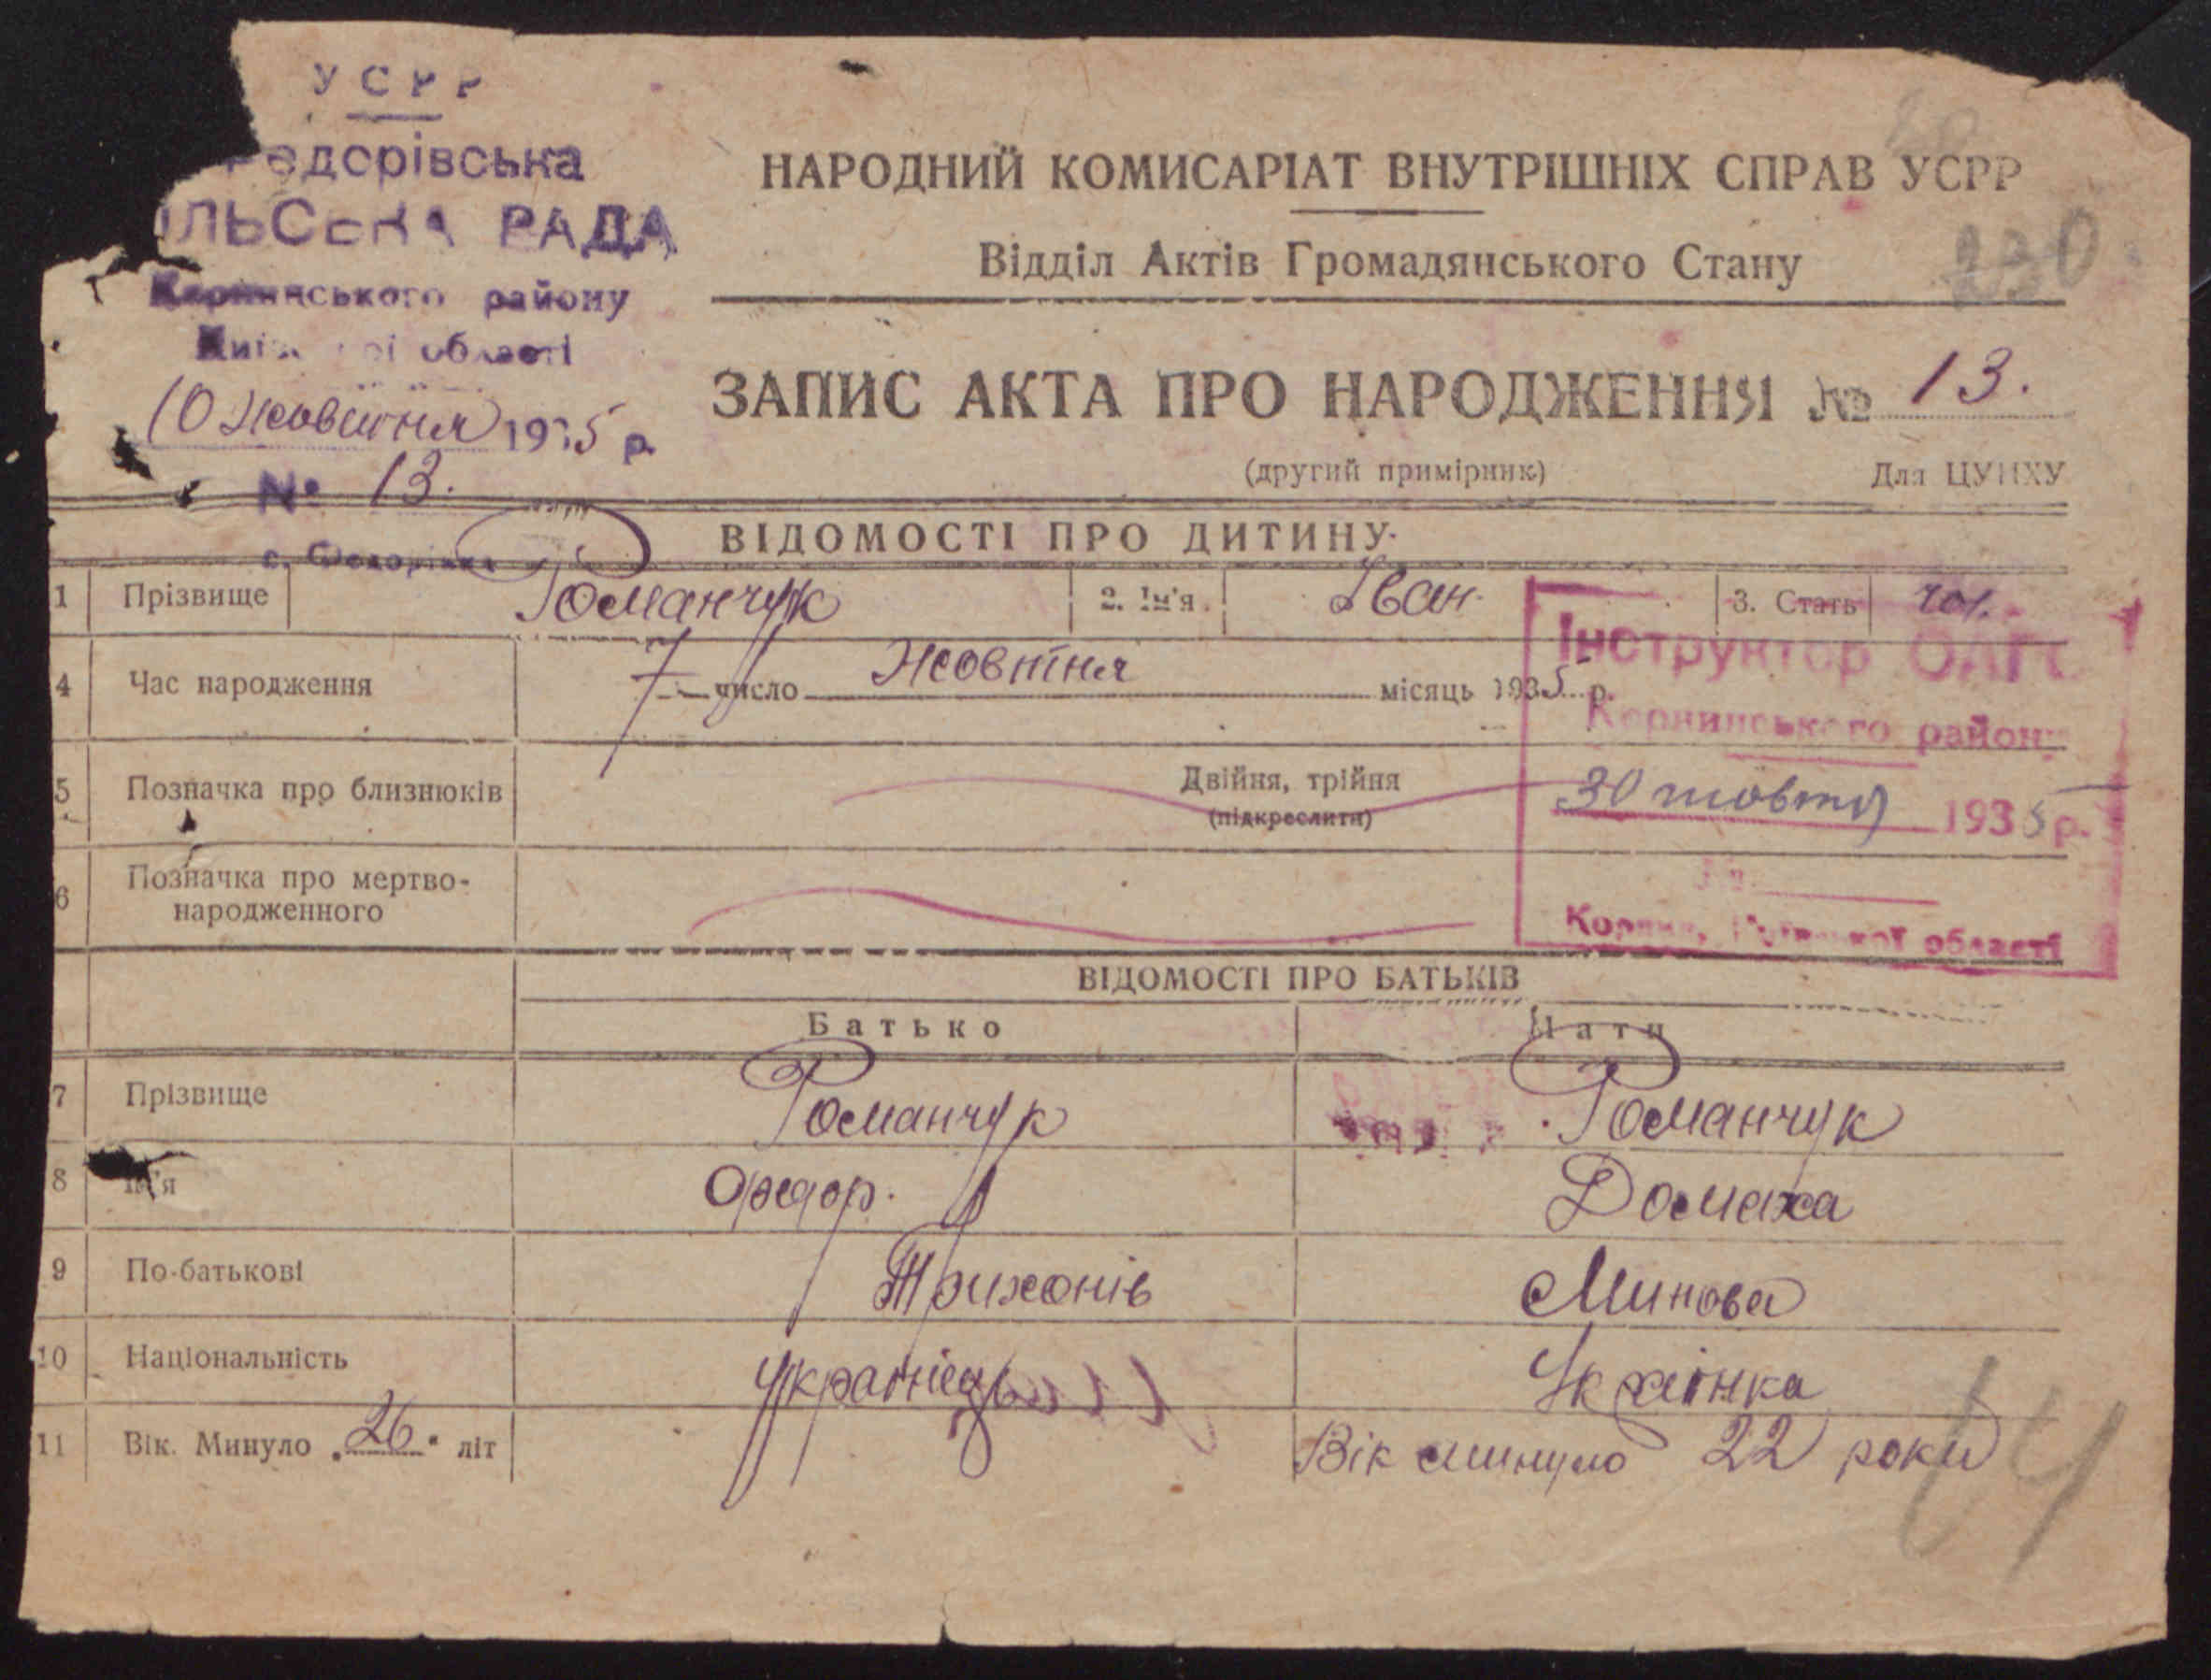 УСРР
Федорівська
СІЛЬСЬКА РАДА
Корнинського району
Київської області
10 жовтня 1935 р.
№ 13.
с. Федорівка
НАРОДНИЙ КОМИСАРІАТ ВНУТРІШНІХ СПРАВ УСРР
230
Відділ Актів Громадянського Стану
ЗАПИС АКТА ПРО НАРОДЖЕННЯ № 13.
(другий примірник) Для ЦУНХУ
ВІДОМОСТІ ПРО ДИТИНУ
1 Прізвище Романчук 2. Ім'я Іван 3. Стать чол.
4 Час народження 7 число жовтня місяць 1935 р.
Інструктор ОАГС
Корнинського району
30 жовтня 1935 р.
№
Корнин, Київської області
5 Позначка про близнюків Двійня, трійня
(підкреслити)
6 Позначка про мертво-
народженного
ВІДОМОСТІ ПРО БАТЬКІВ
Батько Мати
7 Прізвище Романчук Романчук
8 Ім'я Федор. Домаха
9 По-батькові Трихонів Минова
10 Національність Українець Українка
11 Вік. Минуло "26" літ Вік минуло 22 роки